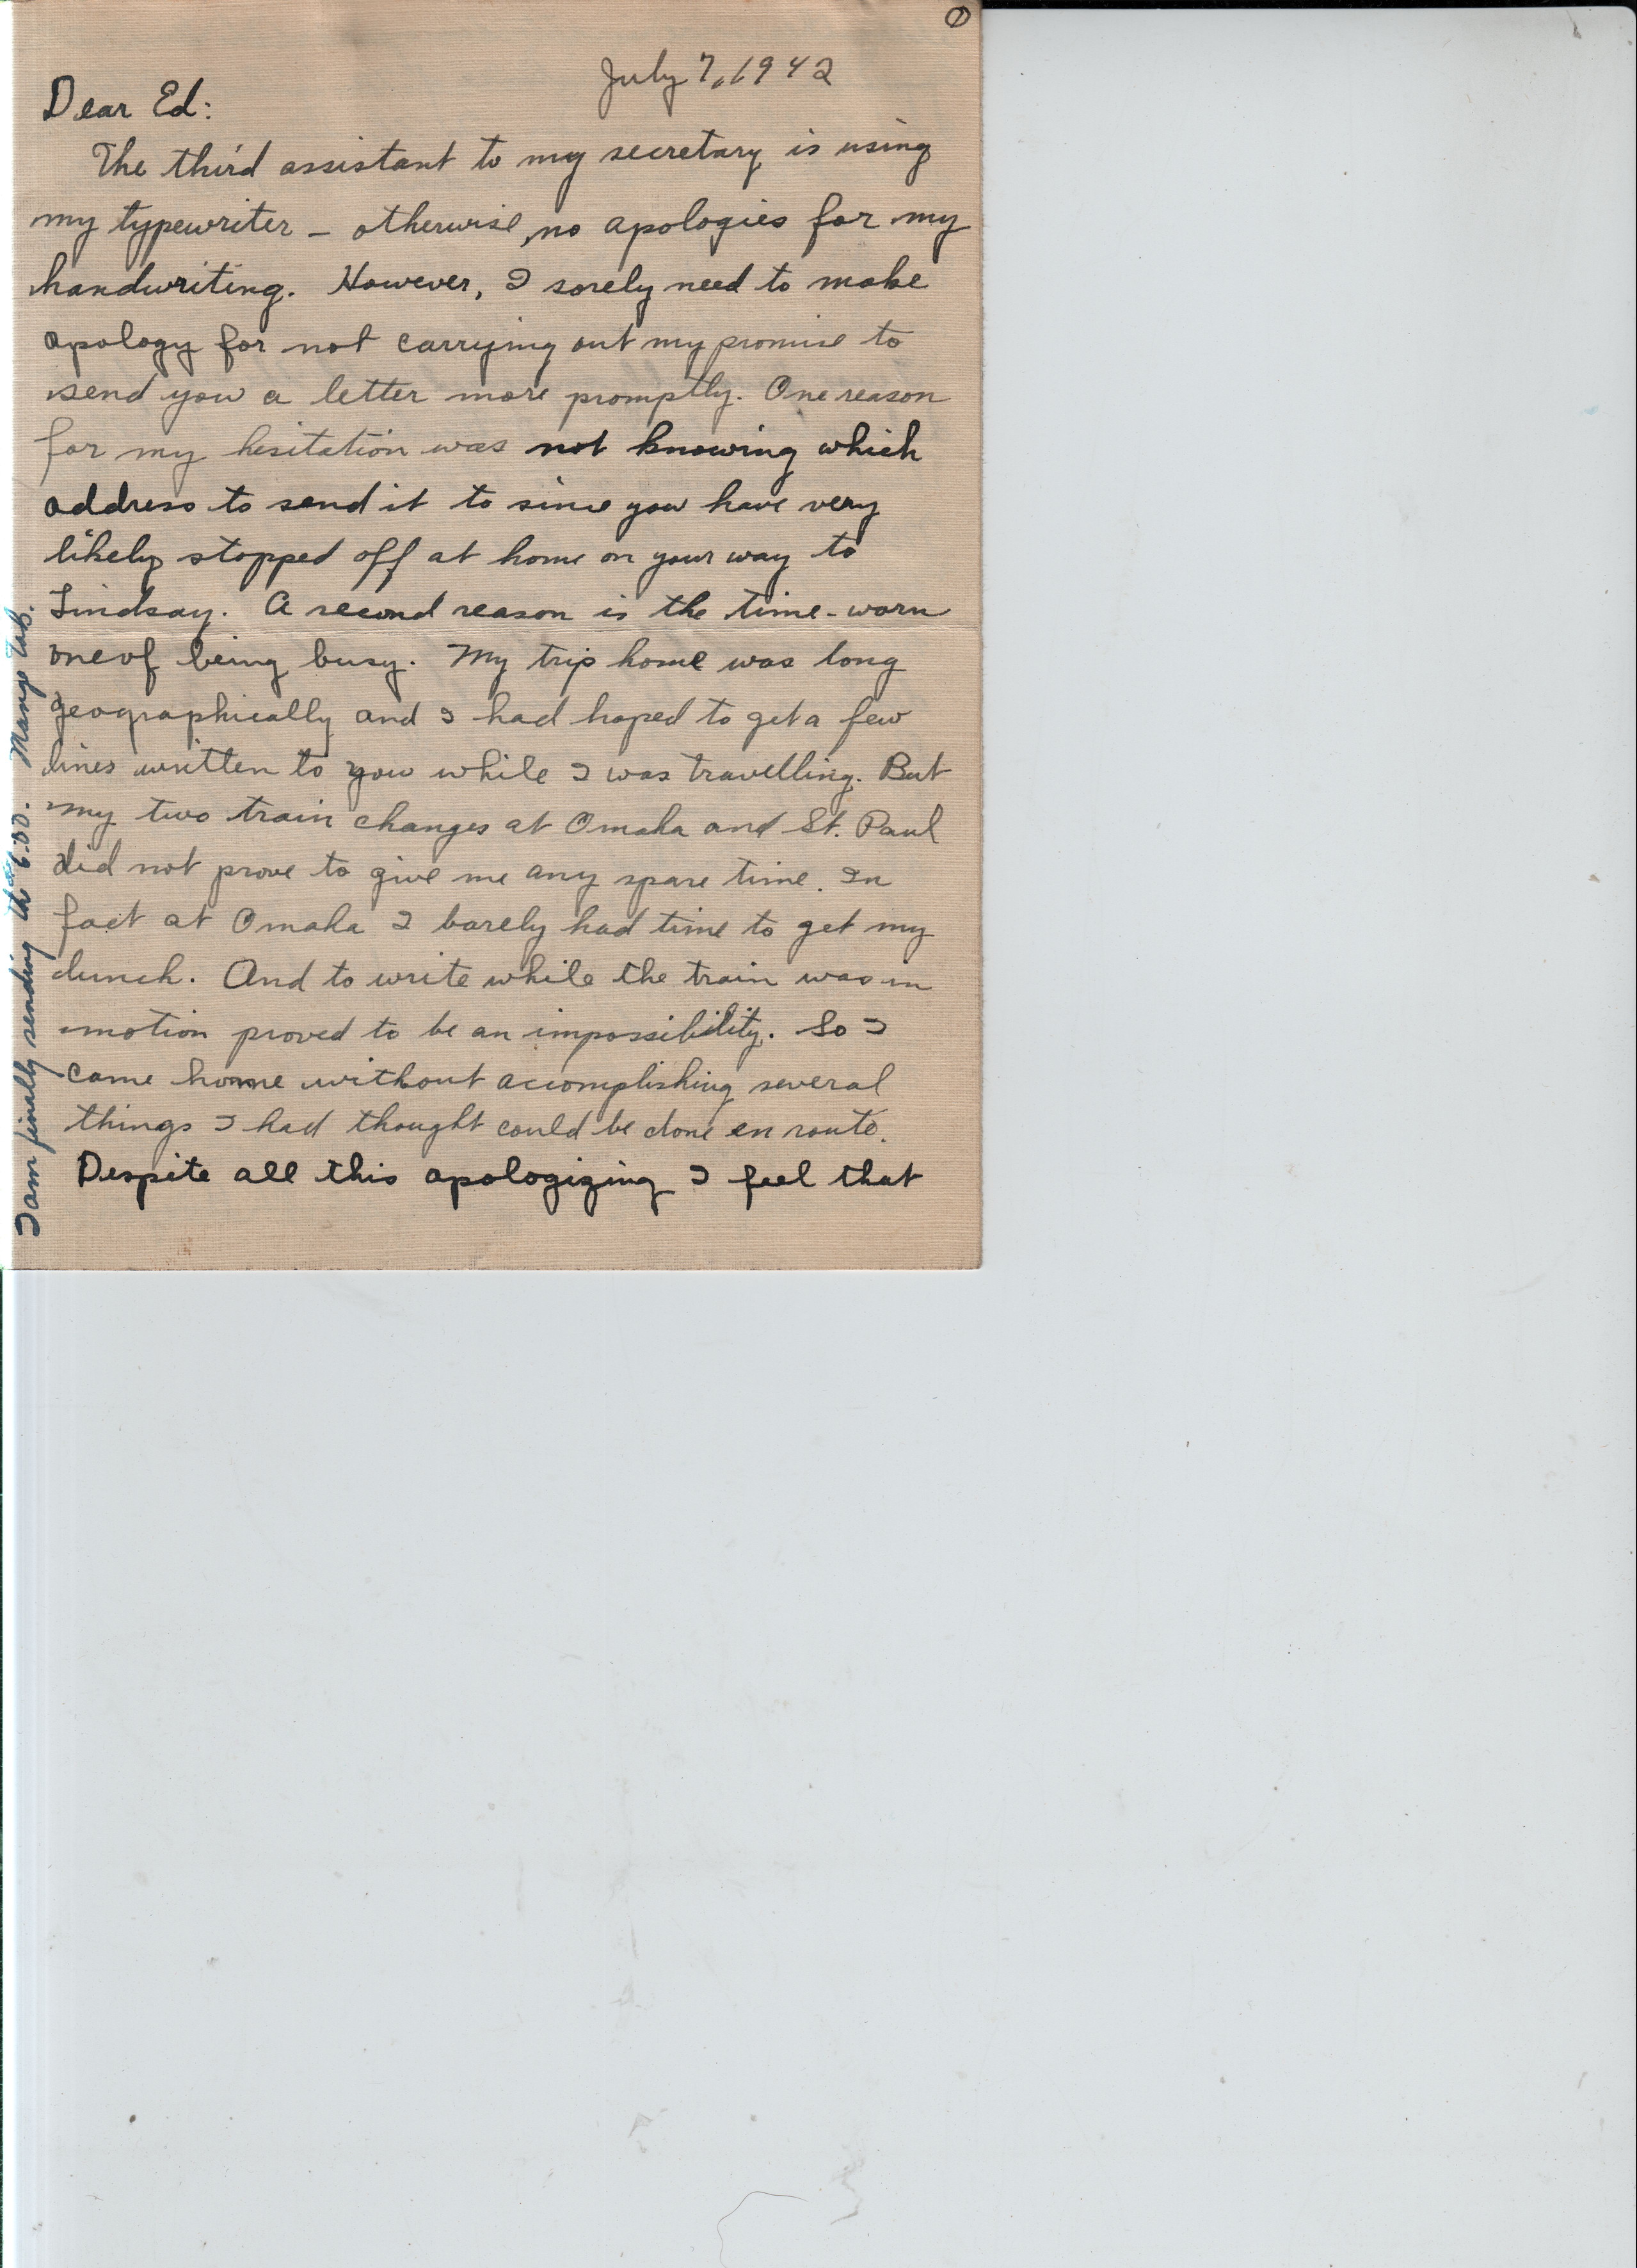 ①
July 7, 1942
Dear Ed:
The third assistant to my secretary is using
my typewriter – otherwise, no apologies for my
handwriting. However, I sorely need to make
apology for not carrying out my promise to
send you a letter more promptly. One reason
for my hesitation was not knowing which
address to send it to since you have very
likely stopped off at home on your way to
Lindsay. A second reason is the time-worn
one of being busy. My trip home was long
geographically and I had hoped to get a few
lines written to you while I was travelling. But
my two train changes at Omaha and St. Paul
did not prove to give me any spare time. In
fact at Omaha I barely had time to get my
lunch. And to write while the train was in
motion proved to be an impossibility. So I
came home without accomplishing several
things I had thought could be done en route.
Despite all this apologizing I feel that
I am finally sending the 6.00. Many